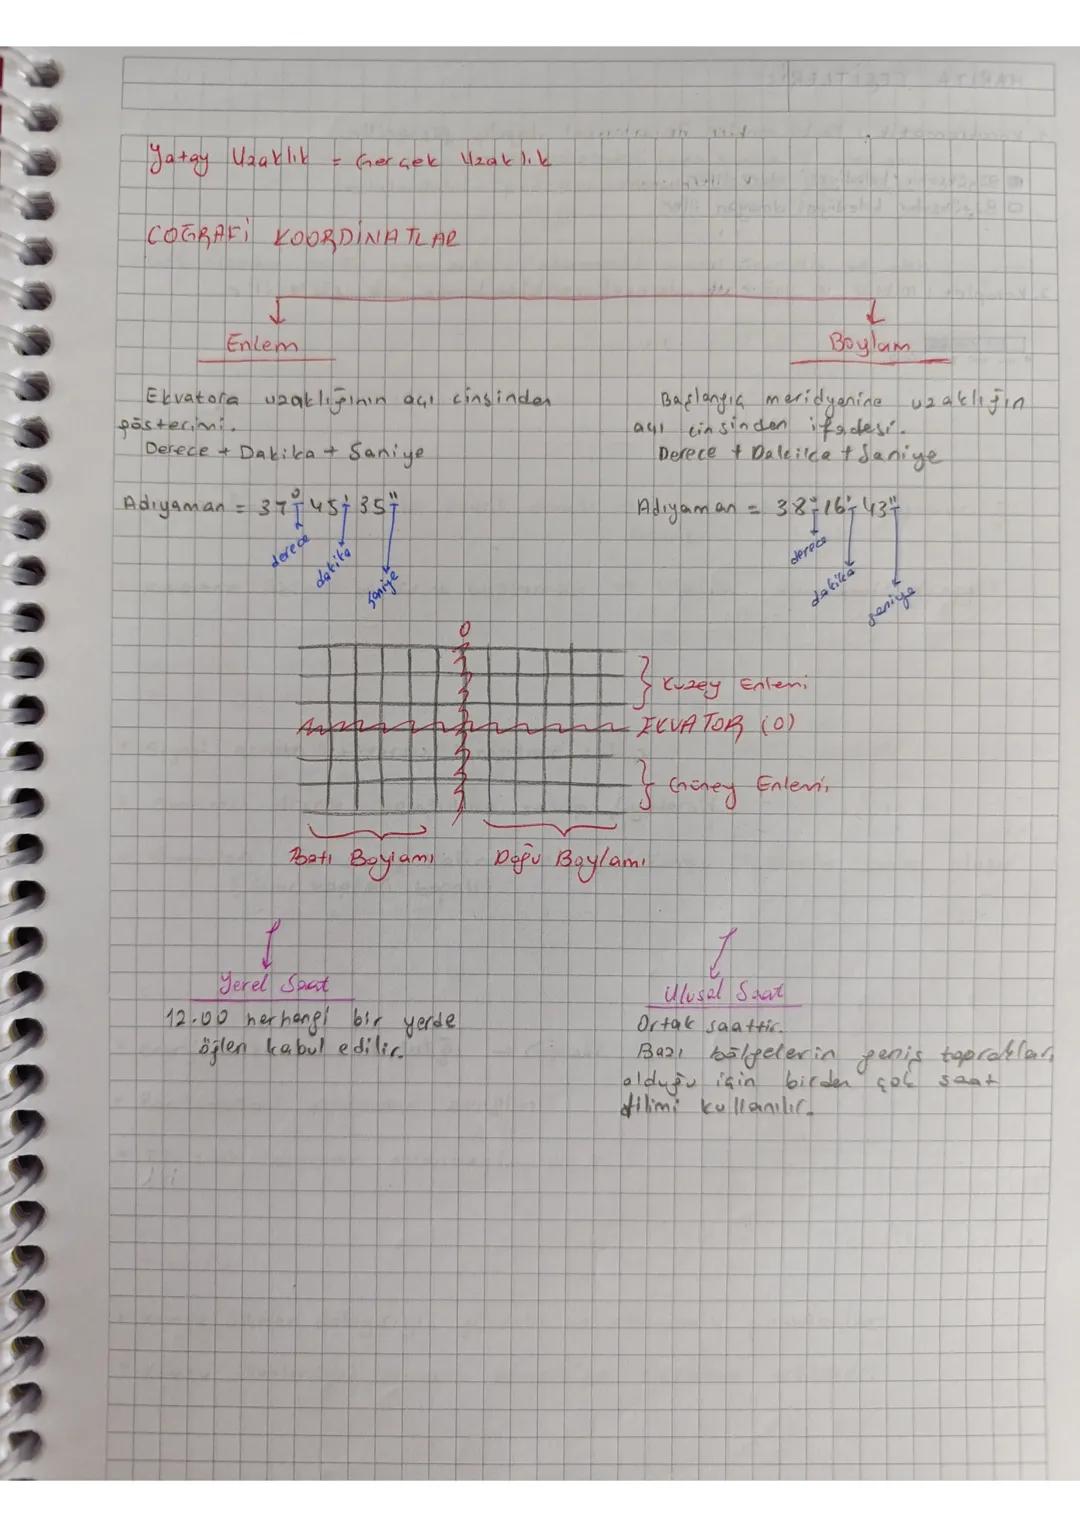 Yatay Uzaklık = Gerçek Uzaklık
COĞRAFİ KOORDİNATLAR
Enlem
Ekvatora uzaklığının açı cinsinden
gösterimi.
Derece + Dakika + Saniye
Adıyaman = 37° 45' 35"
derece
dakika
saniye
Boylam
Başlangıç meridyenine uzaklığın
açı cinsinden ifadesi.
Derece + Dakika + Saniye
Adıyaman = 38° 16' 43"
derece
dakika
saniye
0
Kuzey Enlemi
EKVATOR (0)
Güney Enlemi
Batı Boylamı
Doğu Boylamı
Yerel Saat
12.00 herhangi bir yerde
öğlen kabul edilir.
Ulusal Saat
Ortak saattir.
Bazı bölgelerin geniş toprakları
olduğu için birden çok saat
dilimi kullanılır.